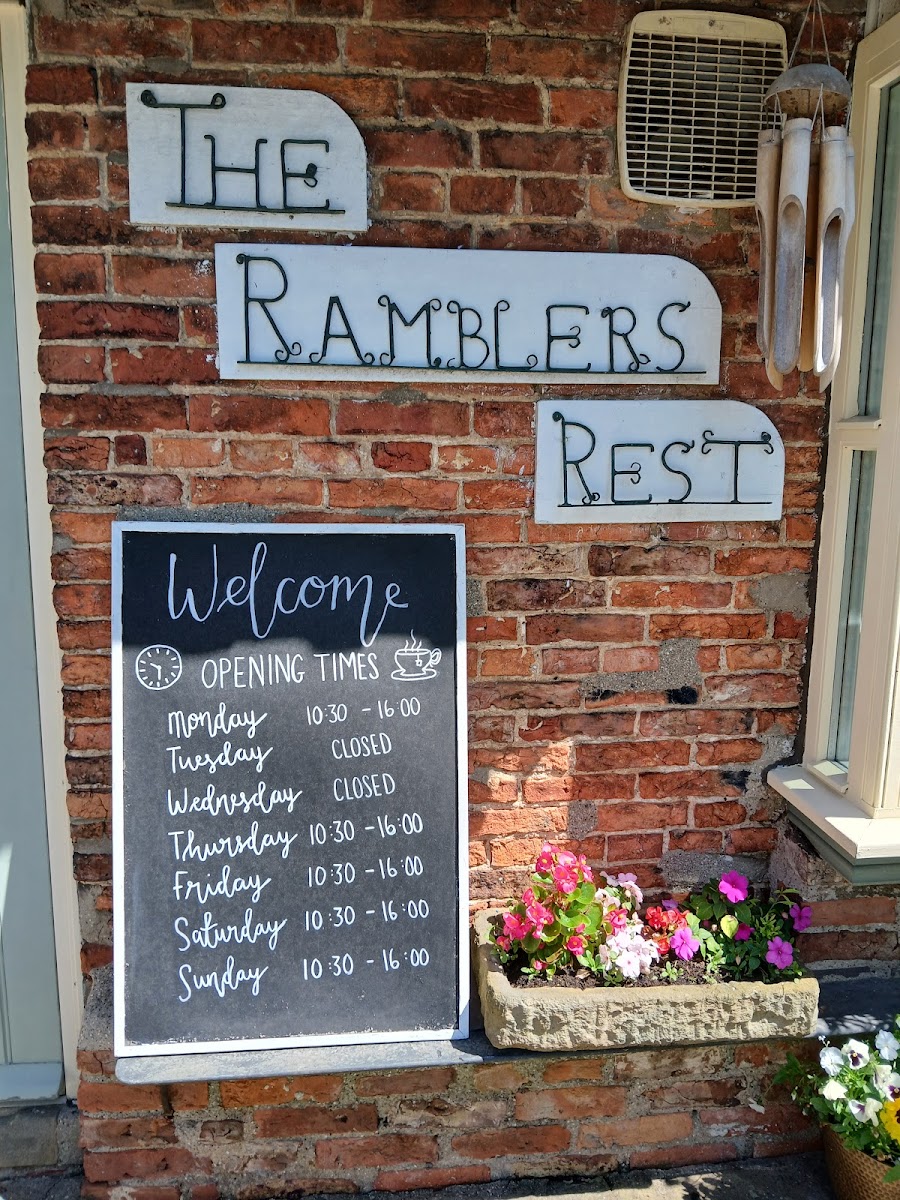 The
Ramblers
Rest
Welcome
OPENING TIMES
Monday 10:30 - 16:00
Tuesday CLOSED
Wednesday CLOSED
Thursday 10:30 - 16:00
Friday 10:30 - 16:00
Saturday 10:30 - 16:00
Sunday 10:30 - 16:00